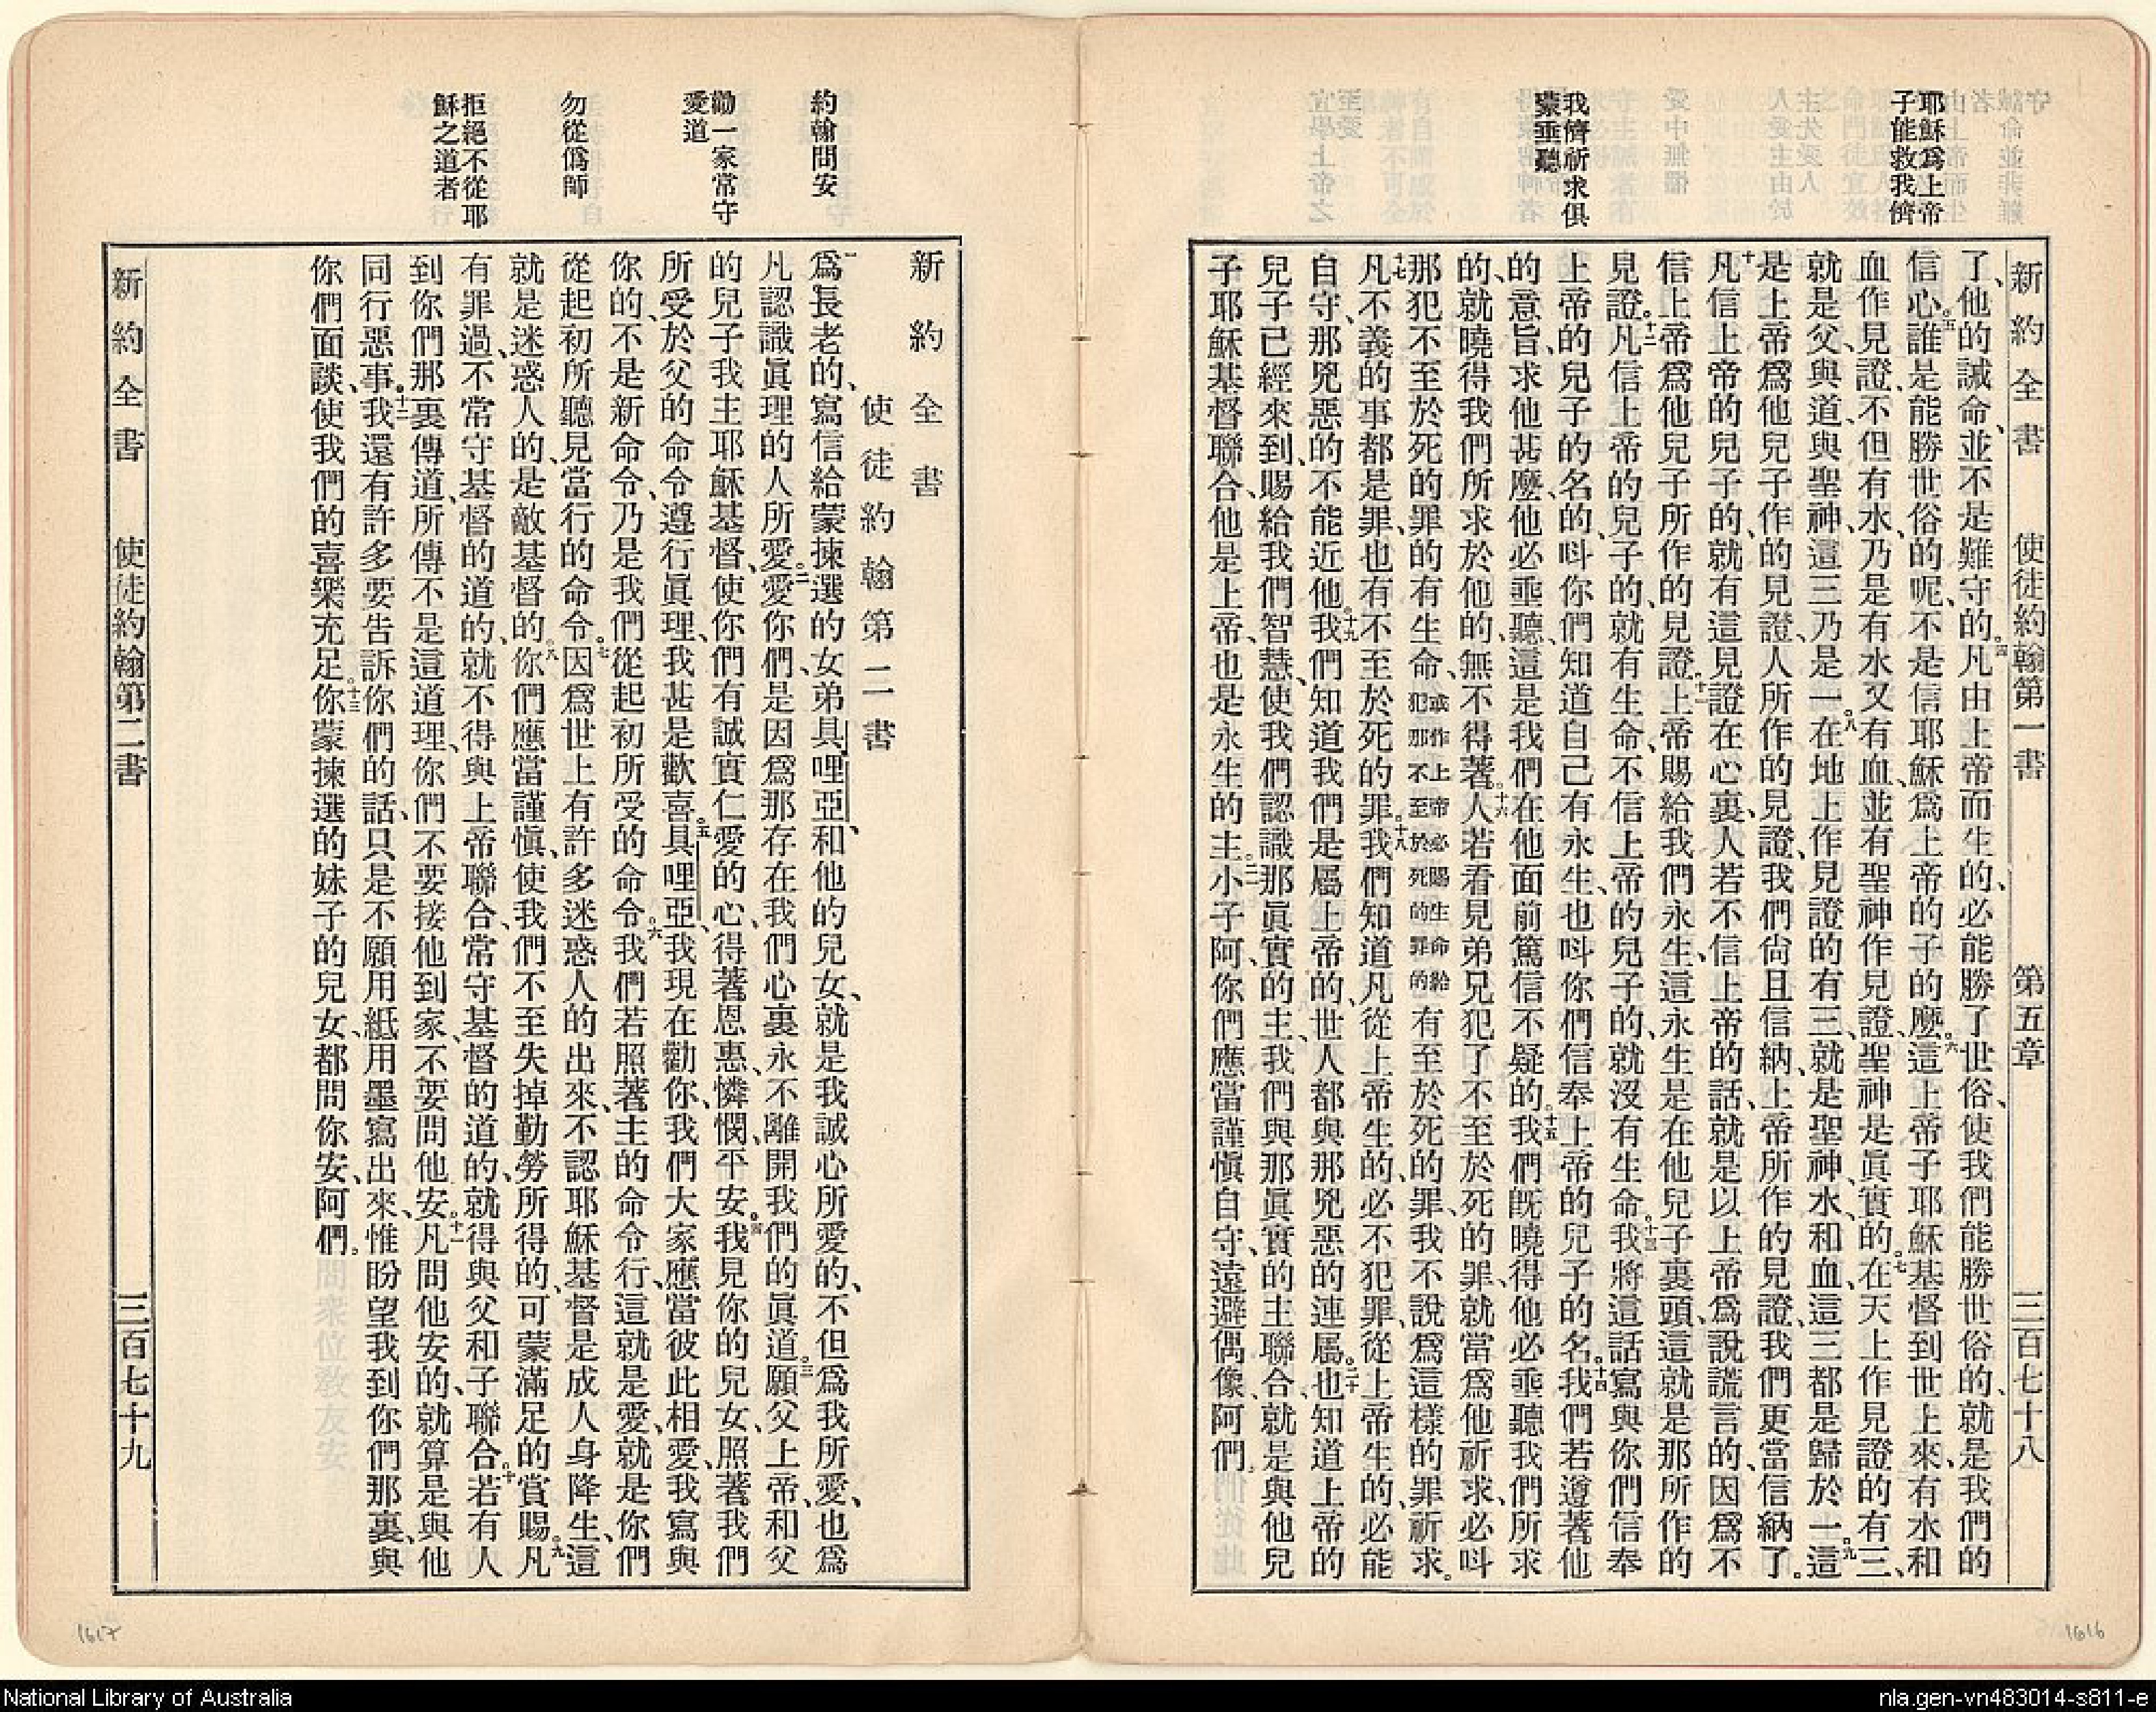 耶穌爲上帝
子能救我儕
我儕祈求俱
蒙垂聽
新約全書 使徒約翰第一書 第五章 三百七十八
了、他的誡命、並不是難守的。四凡由上帝而生的、必能勝了世俗、使我們能勝世俗的、就是我們的
信心。五誰是能勝世俗的呢、不是信耶穌爲上帝的子的麼。六這上帝子耶穌基督到世上來、有水和
血作見證、不但有水、乃是有水又有血、並有聖神作見證、聖神是眞實的。七在天上作見證的有三、
就是父、與道、與聖神、這三乃是一。八在地上作見證的有三、就是聖神、水和血、這三都是歸於一。九這
是上帝爲他兒子作的見證、人所作的見證、我們尙且信納、上帝所作的見證、我們更當信納了。
十凡信上帝的兒子的、就有這見證在心裏、人若不信上帝的話、就是以上帝爲說謊言的、因爲不
信上帝爲他兒子所作的見證。十一上帝賜給我們永生、這永生是在他兒子裏頭、這就是那所作的
見證。十二凡信上帝的兒子的、就有生命、不信上帝的兒子的、就沒有生命。十三我將這話寫與你們信奉
上帝的兒子的名的、呌你們知道自己有永生、也呌你們信奉上帝的兒子的名。十四我們若遵著他
的意旨、求他甚麼、他必垂聽、這是我們在他面前篤信不疑的。十五我們旣曉得他必垂聽我們所求
的、就曉得我們所求於他的、無不得著。十六人若看見弟兄犯了不至於死的罪、就當爲他祈求、必呌
那犯不至於死的罪的有生命、或作上帝必賜生命給犯那不至於死的罪的有至於死的罪、我不說爲這樣的罪祈求。
十七凡不義的事都是罪、也有不至於死的罪。十八我們知道凡從上帝生的、必不犯罪、從上帝生的、必能
自守、那兇惡的不能近他。十九我們知道我們是屬上帝的、世人都與那兇惡的連屬。二十也知道上帝的
兒子已經來到、賜給我們智慧、使我們認識那眞實的主、我們與那眞實的主聯合、就是與他兒
子耶穌基督聯合、他是上帝、也是永生的主。二一小子阿、你們應當謹愼自守、遠避偶像、阿們。
約翰問安
勸一家常守
愛道
勿從僞師
拒絕不從耶
穌之道者
新約全書
使徒約翰第二書
一爲長老的、寫信給蒙揀選的女弟具哩亞、和他的兒女、就是我誠心所愛的、不但爲我所愛、也爲
凡認識眞理的人所愛。二愛你們、是因爲那存在我們心裏永不離開我們的眞道。三願父上帝、和父
的兒子我主耶穌基督、使你們有誠實仁愛的心、得著恩惠、憐憫、平安。四我見你的兒女、照著我們
所受於父的命令、遵行眞理、我甚是歡喜。五具哩亞、我現在勸你、我們大家應當彼此相愛、我寫與
你的、不是新命令、乃是我們從起初所受的命令。六我們若照著主的命令行、這就是愛、就是你們
從起初所聽見當行的命令。七因爲世上有許多迷惑人的出來、不認耶穌基督是成人身降生、這
就是迷惑人的、是敵基督的。八你們應當謹愼、使我們不至失掉勤勞所得的、可蒙滿足的賞賜。九凡
有罪過、不常守基督的道的、就不得與上帝聯合、常守基督的道的、就得與父和子聯合。十若有人
到你們那裏傳道、所傳不是這道理、你們不要接他到家、不要問他安。十一凡問他安的、就算是與他
同行惡事。十二我還有許多要告訴你們的話、只是不願用紙用墨寫出來、惟盼望我到你們那裏、與
你們面談、使我們的喜樂充足。十三你蒙揀選的妹子的兒女、都問你安、阿們。
新約全書 使徒約翰第二書 三百七十九
1617
1616
National Library of Australia
nla.gen-vn483014-s811-e